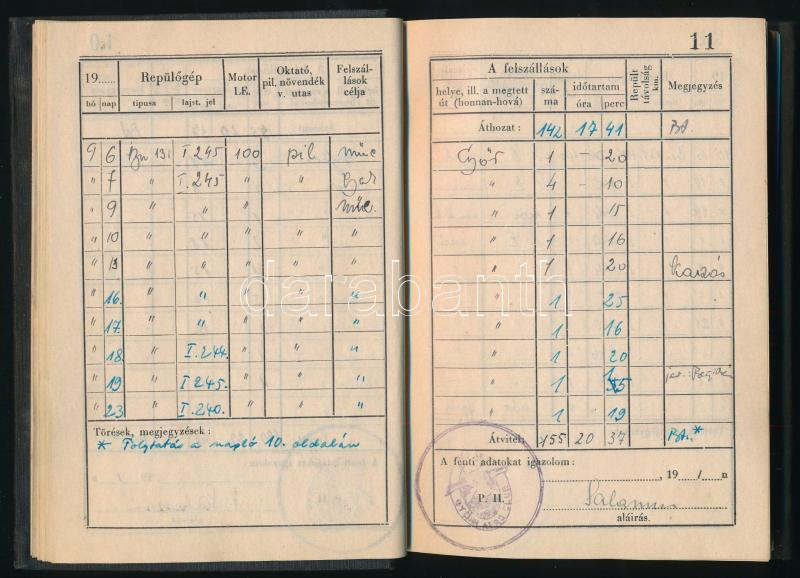 19......
Repülőgép
Motor LE.
Oktató, pil. növendék v. utas
Felszállások célja
hó nap típusa lajst. jel
9 6 Bü 131 I.245 100 pil műe
" 7 " I.245 " " Gyak
" 9 " " " " műe.
" 10 " " " " "
" 13 " " " " "
" 16. " " " " "
" 17. " " " " "
" 18. " I.244. " " "
" 19 " I.245. " " "
" 23 " I.240. " " "
Törések, megjegyzések:
* Folytatás a napló 10. oldalán
11
A felszállások
helye, ill. a megtett út (honnan-hová)
száma
időtartam
óra perc
Repült távolság km.
Megjegyzés
Áthozat: 142 17 41
Győr 1 – 20
" 4 – 10
" 1 15
" 1 16
" 1 20
" 1 25
" 1 16
" 1 20
" 1
" 1 19
Átvitel: 155 20 37
A fenti adatokat igazolom:
......, 19....../......n
P. H.
aláírás.
darabanth